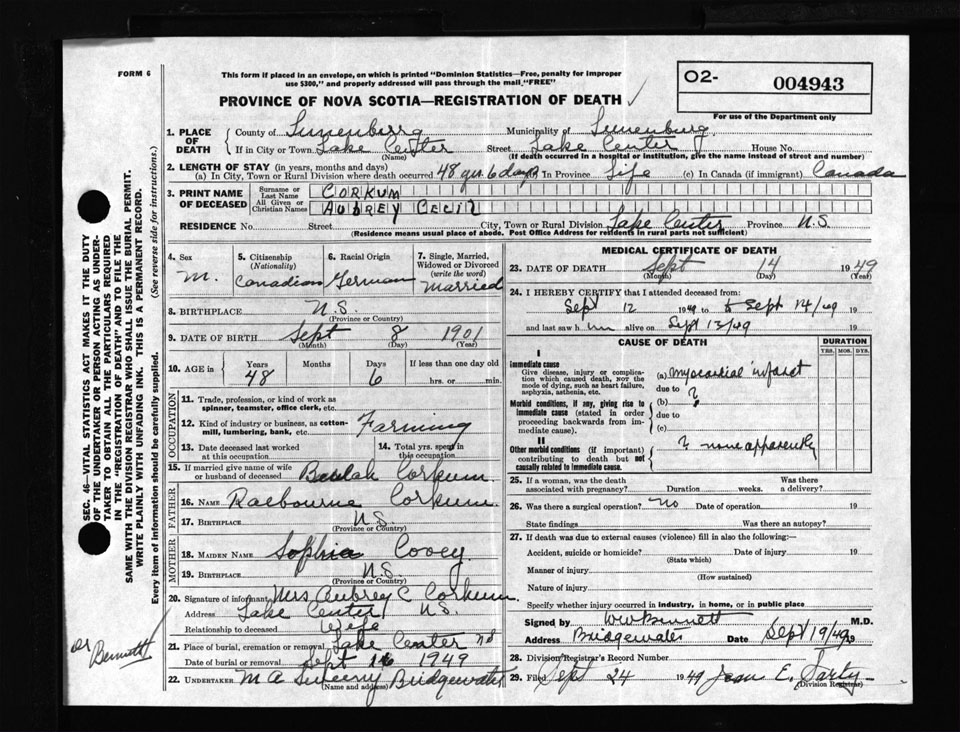 FORM 6
This form if placed in an envelope, on which is printed "Dominion Statistics—Free, penalty for improper
use $300," and properly addressed will pass through the mail "FREE"
O2-
004943
For use of the Department only
PROVINCE OF NOVA SCOTIA—REGISTRATION OF DEATH ✓
1. PLACE OF DEATH { County of Lunenburg Municipality of Lunenburg
If in City or Town Lake Center Street Lake Center House No.
(Name) (If death occurred in a hospital or institution, give the name instead of street and number)
2. LENGTH OF STAY (in years, months and days)
(a) In City, Town or Rural Division where death occurred 48 yrs. 6 days (b) In Province Life (c) In Canada (if immigrant) Canada
3. PRINT NAME OF DECEASED { Surname or Last Name CORKUM
All Given or Christian Names AUBREY CECIL
RESIDENCE No. Street City, Town or Rural Division Lake Center Province N.S.
(Residence means usual place of abode. Post Office Address for residents in rural parts not sufficient)
4. Sex M.
5. Citizenship (Nationality) Canadian
6. Racial Origin German
7. Single, Married, Widowed or Divorced (write the word) Married
8. BIRTHPLACE N.S.
(Province or Country)
9. DATE OF BIRTH Sept 8 1901
(Month) (Day) (Year)
10. AGE in { Years 48 Months Days 6 If less than one day old hrs. or min.
OCCUPATION
11. Trade, profession, or kind of work as spinner, teamster, office clerk, etc.
12. Kind of industry or business, as cotton-mill, lumbering, bank, etc. Farming
13. Date deceased last worked at this occupation
14. Total yrs. spent in this occupation
15. If married give name of wife or husband of deceased Beulah Corkum
FATHER
16. NAME Raebourne Corkum
17. BIRTHPLACE N.S.
(Province or Country)
MOTHER
18. MAIDEN NAME Sophia Covey
19. BIRTHPLACE N.S.
(Province or Country)
20. Signature of informant Mrs Aubrey C Corkum
Address Lake Center N.S.
Relationship to deceased Wife
21. Place of burial, cremation or removal Lake Center
Date of burial or removal Sept 16 1949
22. UNDERTAKER M A Sweeny Bridgewater
(Name and address)
MEDICAL CERTIFICATE OF DEATH
23. DATE OF DEATH Sept 14 1949
(Month) (Day) (Year)
24. I HEREBY CERTIFY that I attended deceased from:
Sept 12 1949 to Sept 14/49 19
and last saw him alive on Sept 13/49 19
CAUSE OF DEATH
DURATION
YRS. MOS. DYS.
I
Immediate cause
Give disease, injury or complication which caused death, not the mode of dying, such as heart failure, asphyxia, asthenia, etc.
(a) myocardial infarct
due to
Morbid conditions, if any, giving rise to immediate cause (stated in order proceeding backwards from immediate cause).
(b) ?
due to
(c)
II
Other morbid conditions (if important) contributing to death but not causally related to immediate cause.
? none apparently
25. If a woman, was the death associated with pregnancy? Duration weeks. Was there a delivery?
26. Was there a surgical operation? no Date of operation 19
State findings Was there an autopsy?
27. If death was due to external causes (violence) fill in also the following:—
Accident, suicide or homicide? Date of injury 19
(State which)
Manner of injury
(How sustained)
Nature of injury
Specify whether injury occurred in industry, in home, or in public place
Signed by WW Bennett M.D.
Address Bridgewater Date Sept 19/49 19
28. Division Registrar's Record Number
29. Filed Sept 24 1949 Jean E. Sarty
(Division Registrar)
SEC. 46—VITAL STATISTICS ACT MAKES IT THE DUTY
OF THE UNDERTAKER OR PERSON ACTING AS UNDER-
TAKER TO OBTAIN ALL THE PARTICULARS REQUIRED
IN THE "REGISTRATION OF DEATH" AND TO FILE THE
SAME WITH THE DIVISION REGISTRAR WHO SHALL ISSUE THE BURIAL PERMIT.
WRITE PLAINLY WITH UNFADING INK. THIS IS A PERMANENT RECORD.
Every item of information should be carefully supplied. (See reverse side for instructions.)
Dr Bennett